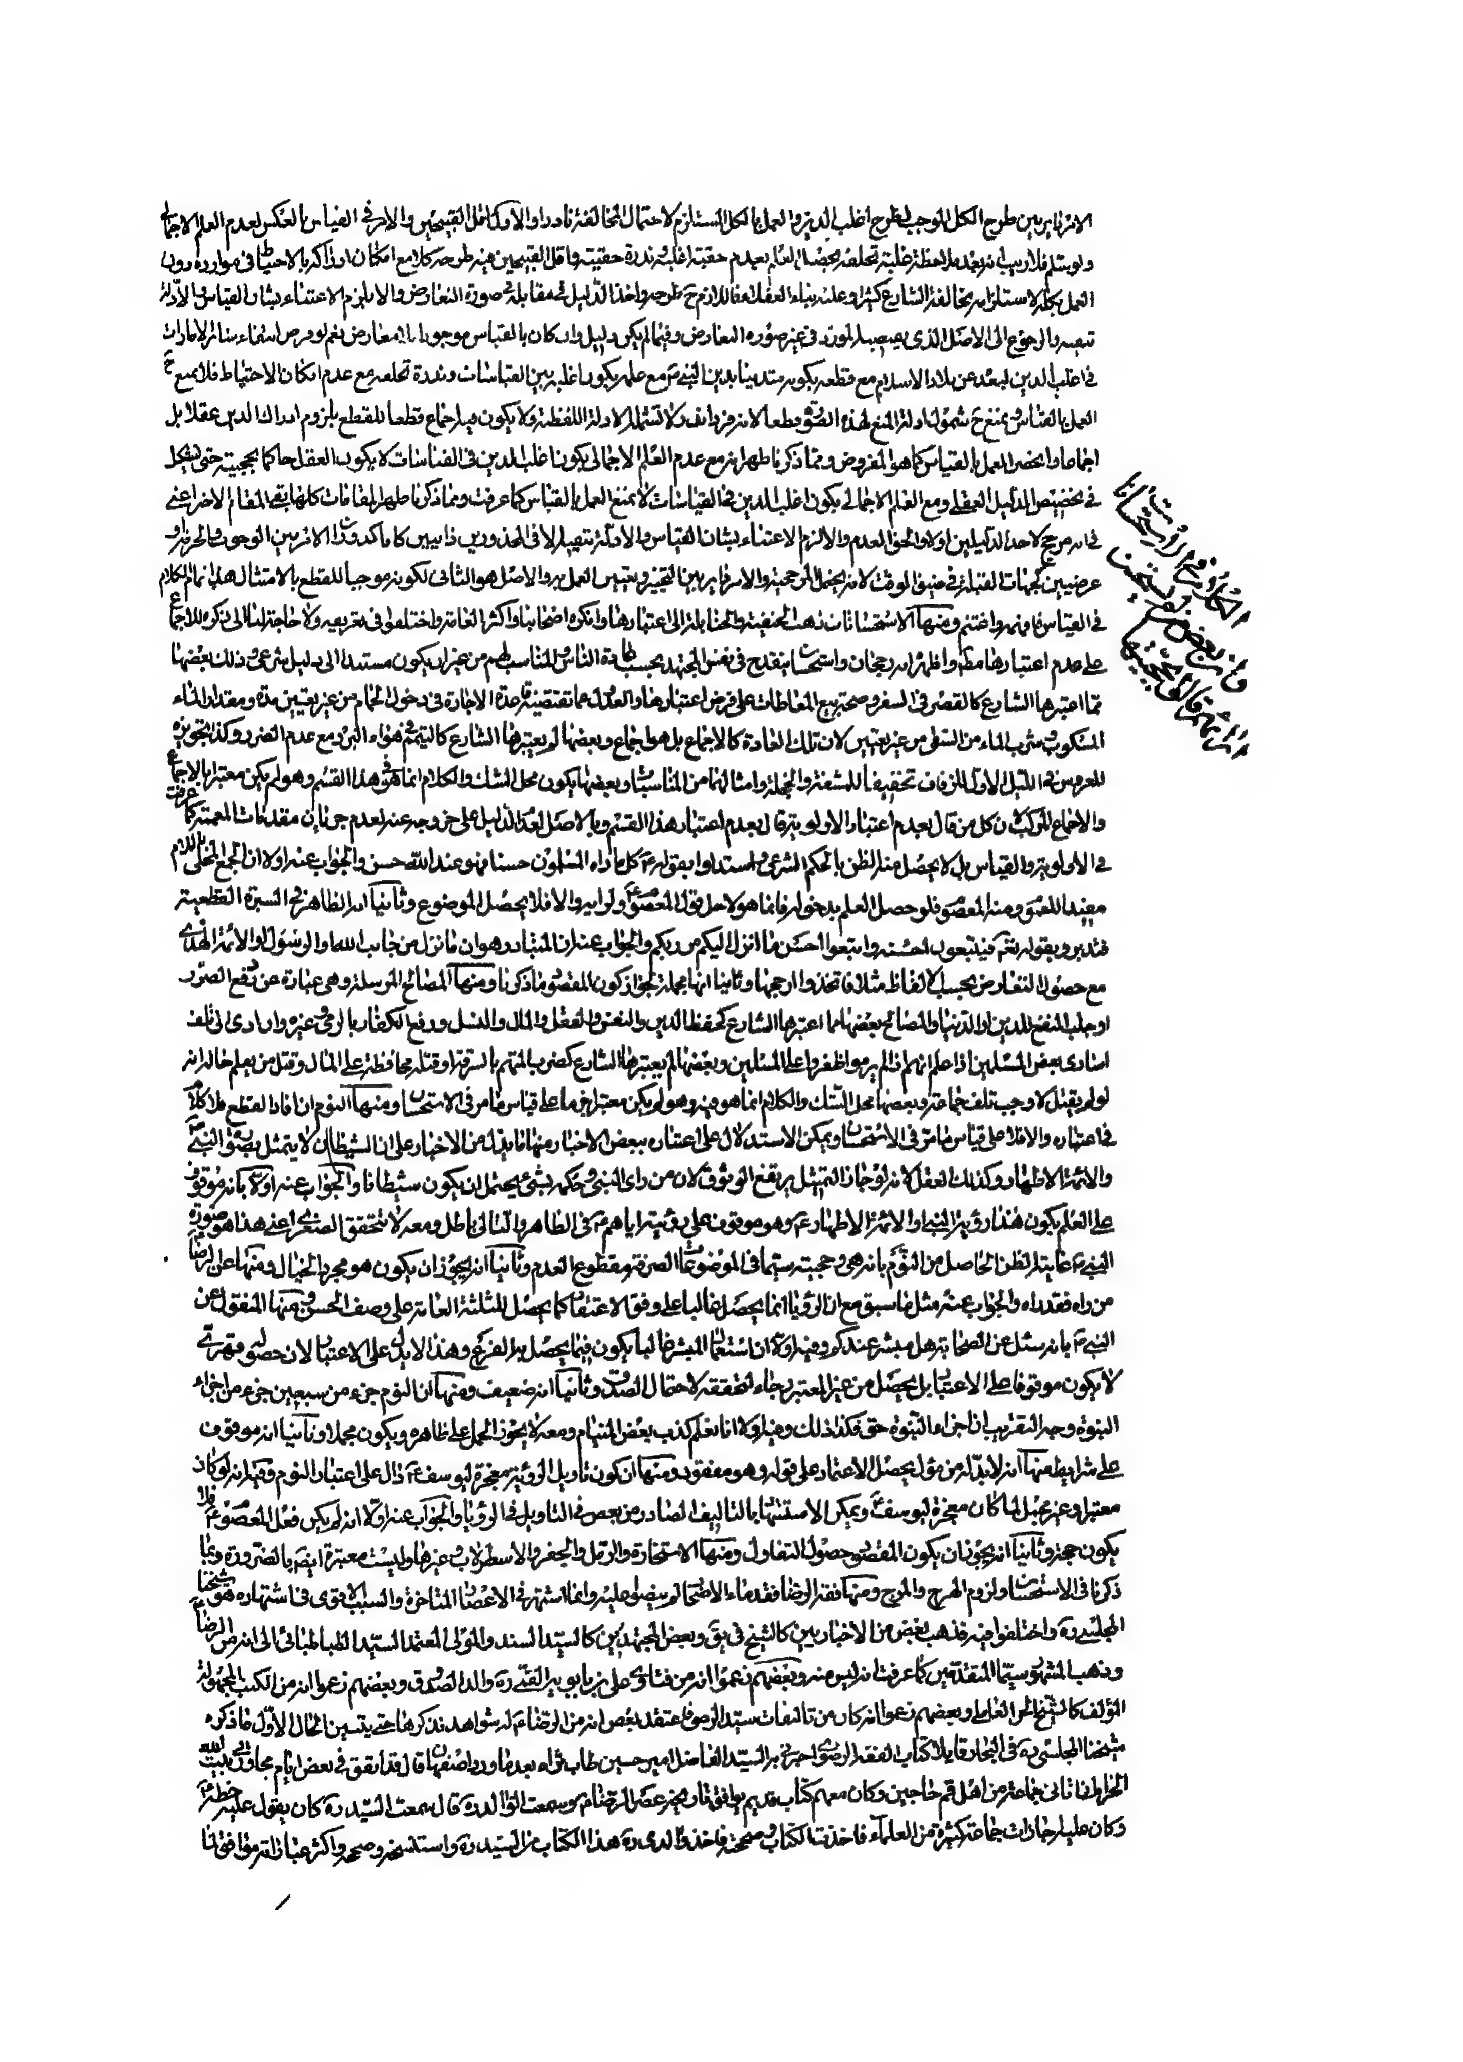 الامر دائر بين طرح الكل الموجب لطرح اغلب الدين والعمل بالكل المستلزم لاحتمال المخالفة نادرا والاول اقل القبيحين والامر في القياس بالعكس لعدم العلم الاجمالي
ولو سلم فلا ريب انه بعد ملاحظة غلبة تخلفه يحصل العلم بعدم حقية اغلبه وندرة حقيته واقل القبيحين فيه طرحه كلا مع امكان اذا كر بالاحتياط في موارده دون
العمل بكله لاستلزامه مخالفة الشارع كثيرا وعليه بناء العقلاء فاللازم ح طرحه واخذ الدليل في مقابله في صورة التعارض والا يلزم الاعتناء بشان القياس والادلة
تبصره والرجوع الى الاصل الذي في المورد في غير صورة التعارض وفيما لم يكن دليل وان كان بالقياس موجودا بلا معارض نعم لو فرض انتفاء سائر الامارات
في اغلب الدين لبعد عن بلاد الاسلام مع قطعه بكونه متدينا بدين النبي ص مع علمه بكون اغلبه بين القياسات وندرة تخلفه مع عدم امكان الاحتياط فلا يمنع ح
العمل بالقياس ويمنع ح شمول ادلة المنع لهذه الصورة قطعا لانه فرد نادر ولا تشمله الادلة اللفظية ولا يكون فيه اجماع قطعا للقطع بلزوم ادراك الدين عقلا بل
اجماعا وانحصر العمل بالقياس كما هو المفروض وبما ذكرنا ظهر انه مع عدم العلم الاجمالي بكون اغلب الدين في القياسات لا يكون العقل حاكما بحجيته حتى يشكل
في تخصيص الدليل العقلي ومع العلم الاجمالي بكون اغلب الدين في القياسات لا يمنع العمل بالقياس كما عرفت ومما ذكرنا ظهر المقامات كلها بقي المقام الاخر اعني
في انه مرجح لاحد الدليلين اولا والحق العدم والا لزم الاعتناء بشان القياس والادلة تبصره الا في المحذورين ذاتيين كما اكد ودار الامر بين الوجوب والحرمة او
عرضيين كجهات القبلة في ضيق الوقت لانه يحتمل المرجحية والامر دائر بين التخيير وتعيين العمل به والاصل هو الثاني لكونه موجبا للقطع بالامتثال هذا تمام الكلام
في القياس فافهمه واغتنم ومنها الاستحسانات ذهب الحنفية والحنابلة الى اعتبارها وانكره اصحابنا واكثر العامة واختلفوا في تعريفه ولا حاجة لنا الى ذكره للاجماع
على عدم اعتبارها مطلقا واظهر انه رجحان واستحسان ينقدح في نفس المجتهد بحسب عادة الناس والمناسب لهم من غير ان يكون مستندا الى دليل شرعي وذلك بعضها
مما اعتبرها الشارع كالقصر في السفر وصحة بيع المعاطات على فرض اعتبارها والعدول عما تقتضيه قاعدة الاجارة في دخول الحمام من غير تعيين مدة ومقدار الماء
المسكوب وشرب الماء من السقا من غير تعيين لان تلك العادة كالاجماع بل هو اجماع وبعضها لم يعتبرها الشارع كالتيمم في هواء البرد مع عدم الضرر وكذا تجويزه
للعروس في الليل الاول للزفاف تخفيفا للمشقة والخجلة وامثالها من المناسبات وبعضها يكون محل الشك والكلام انما هو في هذا القسم وهو لم يكن معتبرا بالاجماع
والاجماع المركب لان كل من قال بعدم اعتبار الاولوية قال بعدم اعتبار هذا القسم وبالاصل لعدم الدليل على خروجه عنه لعدم جريان مقدمات المعتمة كما عرفت
في الاولوية والقياس بل لا يحصل منه الظن بالحكم الشرعي واستدلوا بقوله ع كل ما راه المسلمون حسنا فهو عند الله حسن والجواب عنه اولا ان الجمع المحلى باللام
مفيد للعموم ومنه المعصوم فلو حصل العلم بدخوله فانما هو لاجل قول المعصوم ع ولا ريب والا فلا يحصل الموضوع وثانيا انه الظاهر في السيرة القطعية
فتدبر وبقوله تعم فيتبعون احسنه واتبعوا احسن ما انزل اليكم من ربكم والجواب عنه ان المتبادر هو ان ما نزل من جانب الله او الرسول او الائمة الهدى
مع حصول التعارض بحسب الالفاظ مثلا فاتخذوا ارجحها وثانيا انها مجملة لجواز كون المقصود ما ذكرنا ومنها المصالح المرسلة وهي عبارة عن دفع الضرر
او جلب النفع للدين او الدنيا والمصالح بعضها مما اعتبرها الشارع كحفظ الدين والنفس والعقل والمال والنسل ودفع الكفار بالرمي وغيره وان ادى الى تلف
اسارى بعض المسلمين اذا علم انهم لو لم يرموا ظفروا على المسلمين وبعضها لم يعتبرها الشارع كضرب المتهم بالسرقة او قتله محافظة على المال وقتل من يعلم حاله انه
لو لم يقتل لاوجب تلف جماعة وبعضها محل الشك والكلام انما هو فيه وهو لم يكن معتبرا ايضا على قياس ما مر في الاستحسان ومنها النوم ان افاد القطع فلا كلام
في اعتباره والا فلا على قياس ما مر في الاستحسان ويمكن الاستدلال على اعتباره ببعض الاخبار منها ما يدل من الاخبار على ان الشيطان لا يتمثل بصورة النبي ص
والائمة الاطهار وكذلك العقل لانه لو جاز التمثيل يرتفع الوثوق لان من راى النبي وحكمه بشئ يحتمل ان يكون شيطانا والجواب عنه اولا بانه موقوف
على العلم بكون هذا رؤية النبي او الائمة الاطهار ع وهو موقوف على رؤيته اياهم ع في الظاهر والتالي باطل ومعه لا يتحقق الصغرى اعني هذا هو صورة
النبي ص غايته الظن الحاصل من النوم بانه هي وحجيته سيما في الموضوعات الصرفة مقطوع العدم وثانيا انه يجوز ان يكون هو مجرد الخيال ومنها عن الرضا ع
من راه فقد راه والجواب عنه مثل ما سبق مع ان الرؤيا انما يحصل غالبا على وفق الاعتقاد كما يحصل للثلثة العامة على وصف الحسن ومنها المنقول عن
النبي ص بانه سئل عن الصحابة هل مبشر عندكم وفيه اولا ان استعمال المبشر غالبا يكون فيما يحصل به الفرح وهذا لا يدل على الاعتبار لان حصوله قهري
لا يكون موقوفا على الاعتبار بل يحصل من غير المعتبر رجاء لتحققه لاحتمال الصدق وثانيا انه ضعيف ومنها ان النوم جزء من سبعين جزء من اجزاء
النبوة وجه التقريب ان اجزاء النبوة حق فكذا ذلك وفيه اولا انا نعلم كذب بعض المنام ومعه لا يجوز الحمل على ظاهره ويكون مجملا وثانيا انه موقوف
على شرايط منها انه لا بد له من مؤل يحصل الاعتماد على قوله وهو مفقود ومنها ان كون تاويل الرؤية معجزة ليوسف ع دال على اعتبار النوم وفيه انه لو كان
معتبرا وغير مجمل لما كان معجزة ليوسف ع ويمكن الاستشهاد بالتاليف الصادر من بعض في التاويل في الرؤيا والجواب عنه اولا انه لم يكن فعل المعصوم ع فلا
يكون حجة وثانيا انه يجوز ان يكون المقصود حصول التفاول ومنها الاستخارة والرمل والجفر والاسطرلاب وغيرها وليست معتبرة ايضا بالضرورة وبما
ذكرنا في الاستحسان ولزوم الهرج والمرج ومنها فقه الرضا فقدماء الاصحاب لم ينصوا عليه وانما اشتهر في الاعصار المتاخرة والسبب الاقوى في اشتهاره هو شيخنا
المجلسي ره واختلفوا فيه فذهب بعض من الاخباريين كالشيخ في يق وبعض المجتهدين كالسيد السند والمولى المعتمد السيد الطباطبائي الى انه من الرضا ع
وذهب المشهور سيما المتقدمين كما عرفت انه ليس منه وبعضهم زعموا انه من فتاوى علي بن بابويه القمي ره والد الصدوق وبعضهم زعموا انه من الكتب المجهولة
المؤلف كالشيخ الحر العاملي وبعضهم زعموا انه كان من تاليفات سيد المرضى فاعتقد بعض انه من الرضا ع لشواهد نذكرها حتى يتبين الحال الاول ما ذكره
شيخنا المجلسي ره في البحار قايلا كتاب الفقه الرضوي اخبرني به السيد الفاضل امير حسين طاب ثراه بعد ما ورد اصفهان قال قد اتفق في بعض ايام مجاورتي بيت الله
الحرام ان اتاني جماعة من اهل قم حاجين وكان معهم كتاب قديم يوافق تاريخه عصر الرضا ع وسمعت الوالد ره قال سمعت السيد ره كان يقول عليه خطه ع
وكان عليه اجازات جماعة كثيرة من العلماء فاخذت الكتاب وصححته فاخذ والدي ره هذا الكتاب من السيد ره واستنسخه وصححه واكثر عباراته موافق لما